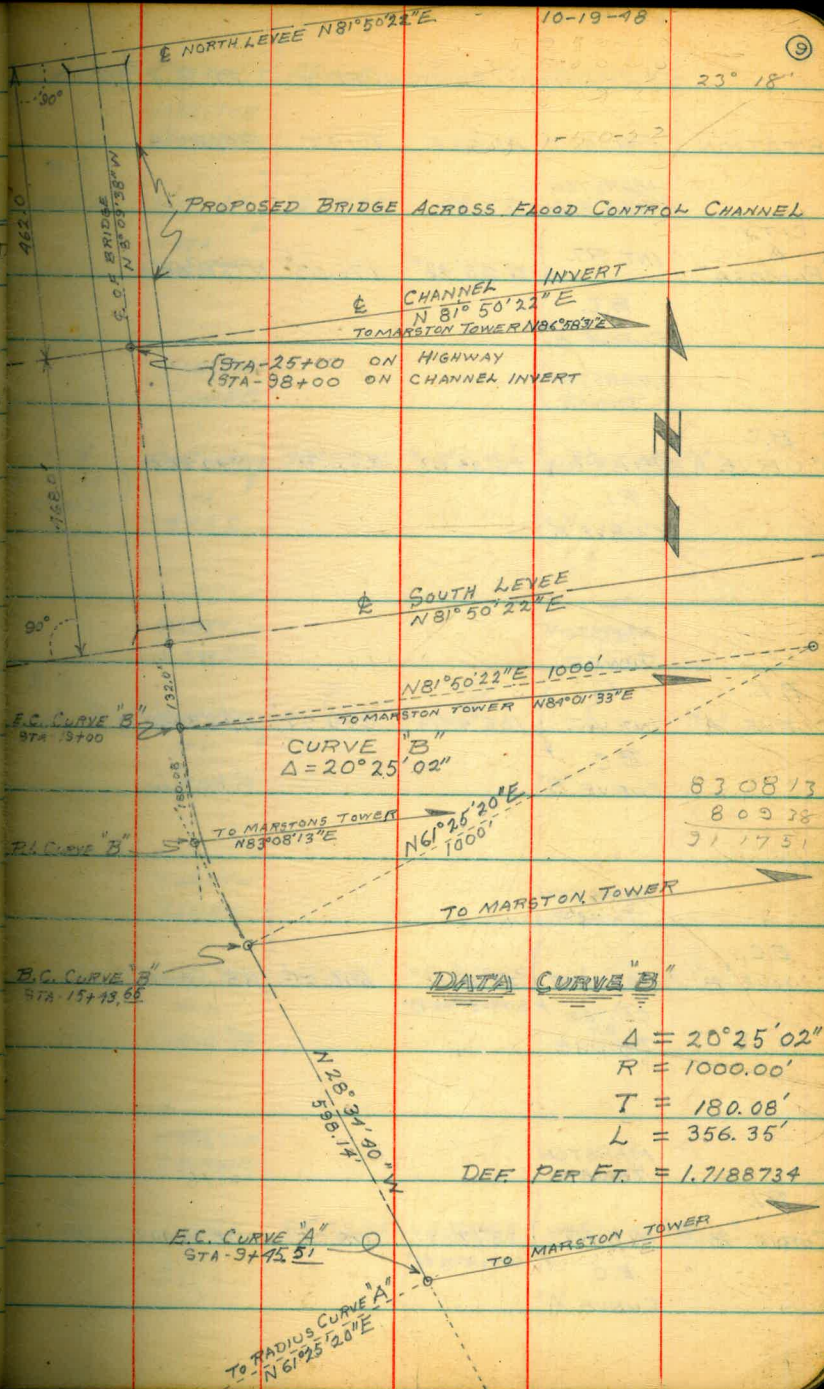 10-19-48
⑨
℄ NORTH LEVEE N81°50'22"E
23° 18'
90°
462.0'
℄ OF BRIDGE
N 8°09'38"W
PROPOSED BRIDGE ACROSS FLOOD CONTROL CHANNEL
℄ CHANNEL INVERT
N 81° 50'22" E
TO MARSTON TOWER N86°58'31"E
STA-25+00 ON HIGHWAY
STA-98+00 ON CHANNEL INVERT
N
468.0'
℄ SOUTH LEVEE
N81°50'22"E
90°
132.0'
N81°50'22"E 1000'
TO MARSTON TOWER N84°01'33"E
E.C. CURVE "B"
STA 19+00
CURVE "B"
Δ = 20°25'02"
180.08'
83 08 13
8 09 38
91 17 51
TO MARSTONS TOWER
N83°08'13"E
P.I. CURVE "B"
N61°25'20"E
1000'
TO MARSTON TOWER
B.C. CURVE "B"
STA-15+43.65
DATA CURVE "B"
Δ = 20°25'02"
R = 1000.00'
T = 180.08'
L = 356.35'
DEF. PER FT. = 1.7188734
N 28°34'40" W
598.14'
E.C. CURVE "A"
STA-9+45.51
TO MARSTON TOWER
TO RADIUS CURVE "A"
N 61°25'20"E